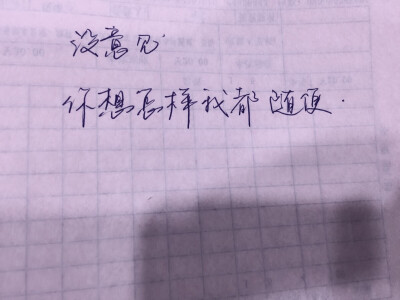 没意见
你想怎样我都随便.